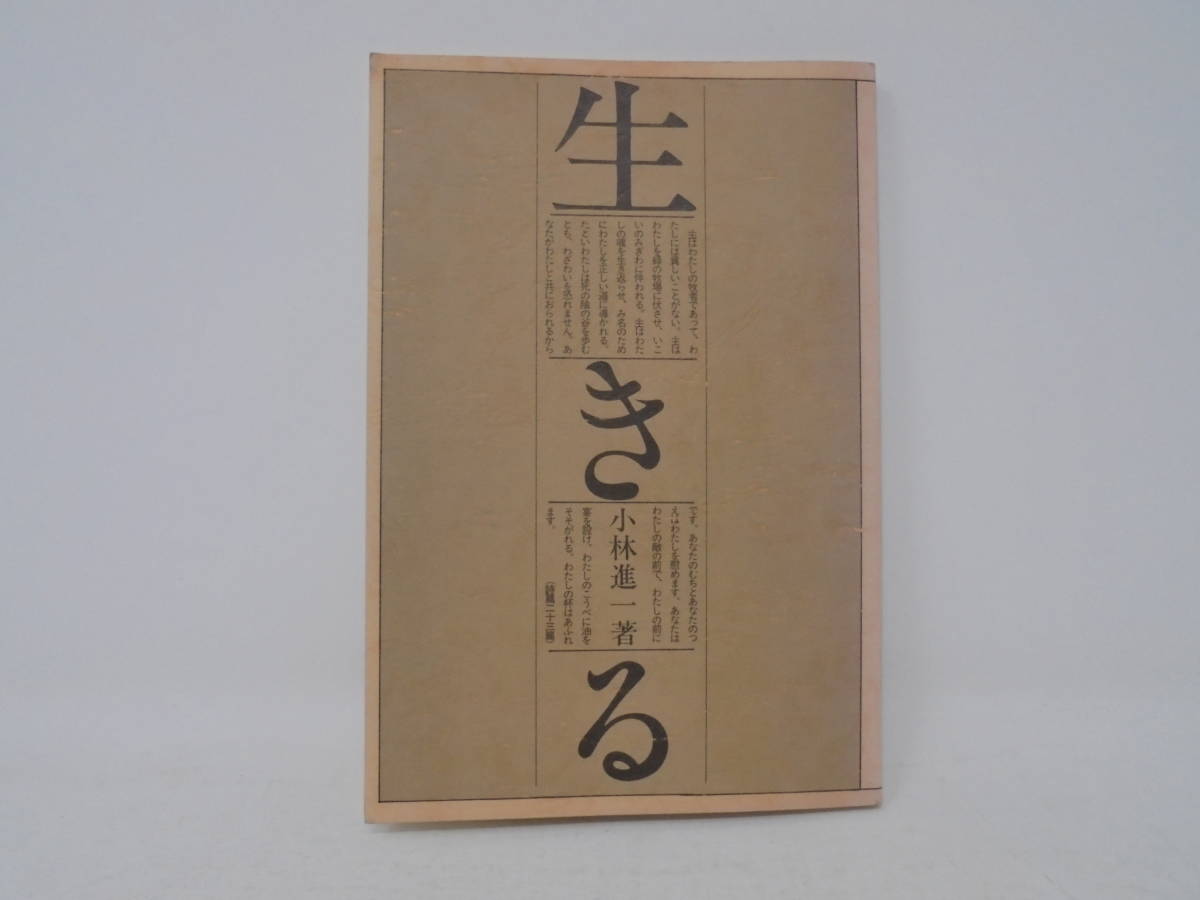 生きる
主はわたしの牧者であって、わ
たしには貧しいことがない。主は
わたしを緑の牧場に伏させ、いこ
いのみぎわに伴われる。主はわた
しの魂を生き返らせ、み名のため
にわたしを正しい道に導かれる。
たといわたしは死の陰の谷を歩む
とも、わざわいを恐れません。あ
なたがわたしと共におられるから
です。あなたのむちとあなたのつ
えはわたしを慰めます。あなたは
わたしの敵の前で、わたしの前に
小林進一著
宴を設け、わたしのこうべに油を
そそがれる。わたしの杯はあふれ
ます。
(詩篇二十三篇)